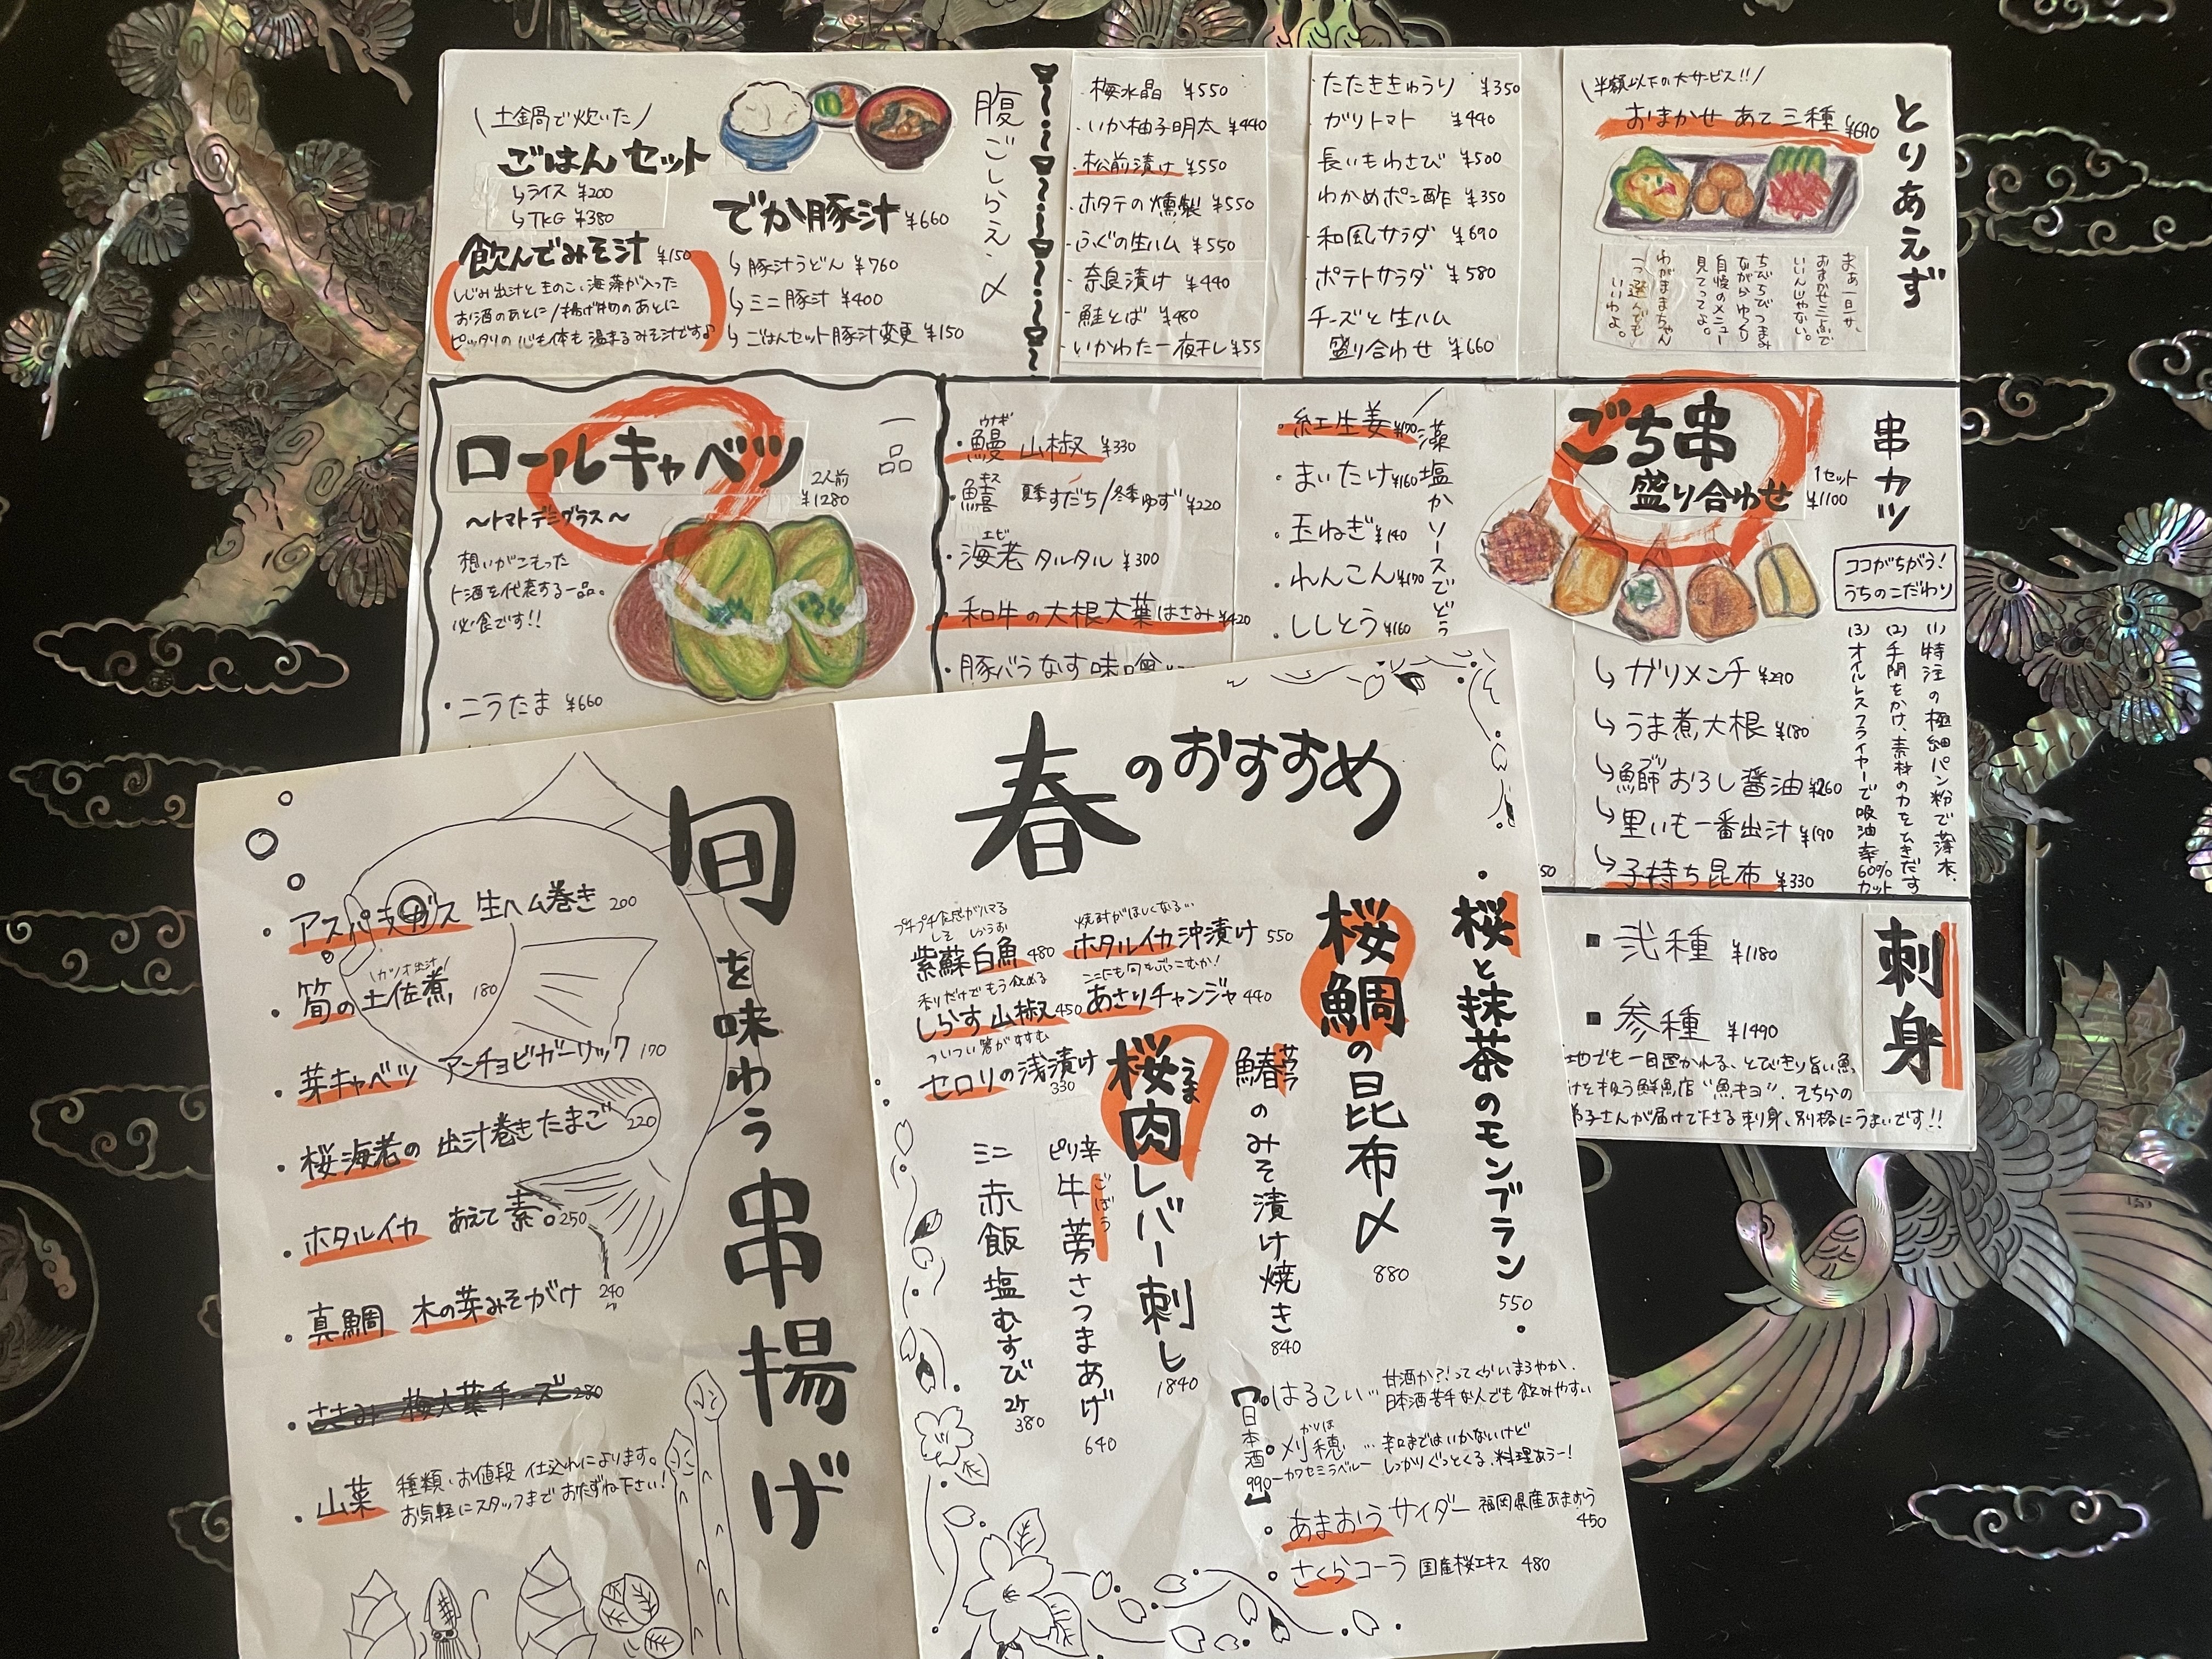 とりあえず
半額以下の大サービス!!
おまかせ あて三種 ¥690
まぁ一旦サ、
おまかせ三ぷで
いいんじゃない。
ちびちびつまみ
ながらゆっくり
自慢のメニュー
見てってよ。
わがままちゃん
選んでも
いいわよ。
・たたききゅうり ¥350
・ガリトマト ¥440
・長いもわさび ¥500
わかめポン酢 ¥350
・和風サラダ ¥690
・ポテトサラダ ¥580
チーズと生ハム
盛り合わせ ¥660
・梅水晶 ¥550
・いか柚子明太 ¥440
・松前漬け ¥550
・ホタテの燻製 ¥550
・ふぐの生ハム ¥550
・奈良漬け ¥440
・鮭とば ¥480
・いかわた一夜干し ¥55
腹ごしらえ・〆
土鍋で炊いた
ごはんセット
↳ライス ¥200
↳TKG ¥380
飲んでみそ汁 ¥150
しじみ出汁ときのこ、海藻が入った
お酒のあとに/揚げ物のあとに
ピッタリの心も体も温まるみそ汁です♪
でか豚汁 ¥660
↳豚汁うどん ¥760
↳ミニ豚汁 ¥400
↳ごはんセット豚汁変更 ¥150
串カツ
ごち串
盛り合わせ
1セット
¥1100
ココがちがう!
うちのこだわり
(1)特注の極細パン粉で薄衣、
(2)手間をかけ、素材の力をひきだす
(3)オイルレスフライヤーで吸油率60%カット
↳ガリメンチ ¥290
↳うま煮大根 ¥180
ブリ
↳鰤おろし醤油 ¥260
↳里いも一番出汁 ¥190
↳子持ち昆布 ¥330
藻塩かソースでどう
・紅生姜 ¥170
・まいたけ ¥160
・玉ねぎ ¥140
・れんこん ¥170
・ししとう ¥160
ウナギ
・鰻 山椒 ¥330
キス
・鱚 夏季すだち/冬季ゆず ¥220
エビ
・海老タルタル ¥300
・和牛の大根大葉はさみ ¥420
・豚バラなす味噌
一品
ロールキャベツ
2人前
¥1280
～トマトデミグラス～
想いがこもった
ト酒を代表する一品。
必食です!!
・ニラたま ¥660
刺身
■ 弐種 ¥1180
■ 参種 ¥1490
地でも一目置かれる、とびきり旨い魚
けを扱う鮮魚店"魚キヨ"、そちらの
弟子さんが届けて下さる刺身、別格にうまいです!!
春のおすすめ
・桜と抹茶のモンブラン 550
桜鯛の昆布〆 880
鰆のみそ漬け焼き 840
うま
桜肉レバー刺し 1840
ごぼう
ピリ辛牛蒡さつまあげ 640
ミニ赤飯塩むすび 2ケ 380
焼酎がほしくなる…
ホタルイカ沖漬け 550
ここにも旬をぶっこむか!
あさりチャンジャ 440
プチプチ食感がハマる
しそ しらうお
紫蘇白魚 480
香りだけでもう飲める
しらす山椒 450
ついつい箸がすすむ
セロリの浅漬け
330
【日本酒 990】
はるこい… 甘酒か?!ってくらいまろやか。
日本酒苦手な人でも飲みやすい
かりほ
刈穂 … 辛口まではいかないけど
ーカワセミラベルー しっかりぐっとくる、料理あうー!
あまおうサイダー 福岡県産あまおう
450
さくらコーラ 国産桜エキス 480
旬を味わう串揚げ
・アスパラガス 生ハム巻き 200
カツオ出汁
・筍の土佐煮 180
・芽キャベツ アンチョビガーリック 170
・桜海老の出汁巻きたまご 220
・ホタルイカ あえて素。 250
・真鯛 木の芽みそがけ 240
・ささみ 梅大葉チーズ 280
・山菜 種類、お値段 仕込れによります。
お気軽にスタッフまでおたずね下さい!